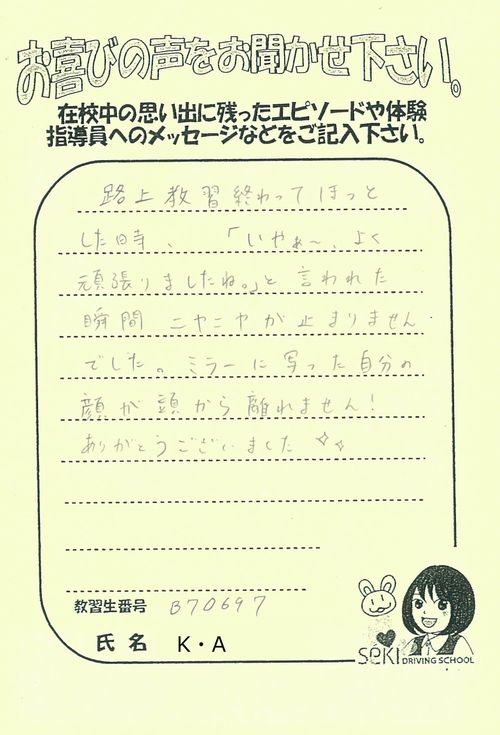 お喜びの声をお聞かせ下さい。
在校中の思い出に残ったエピソードや体験
指導員へのメッセージなどをご記入下さい。
路上教習終わってほっと
した時、「いやぁ〜、よく
頑張りましたね。」と言われた
瞬間ニヤニヤが止まりません
でした。ミラーに写った自分の
顔が頭から離れません!
ありがとうございました
教習生番号 B70697
氏名 K・A
SEKI DRIVING SCHOOL